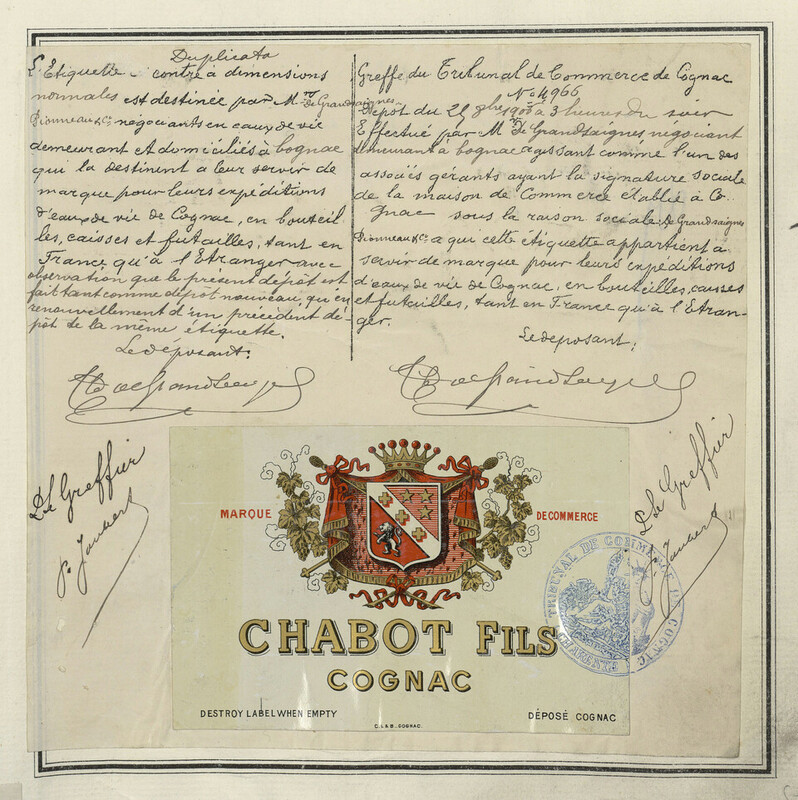 Duplicata
L'Etiquette ci contre à dimensions
normales est destinée par Mrs de Grandsaignes
Dionneau & Cie négociants en eaux de vie
demeurant et domiciliés à Cognac
qui la destinent à leur servir de
marque pour leurs expéditions
d'eaux de vie de Cognac, en bouteil
les, caisses et futailles, tant en
France qu'à l'Etranger avec
observation que le présent dépôt est
fait tant comme dépôt nouveau, qu'en
renouvellement d'un précédent dé-
pôt de la même étiquette.
Le déposant:
Greffe du Tribunal de Commerce de Cognac
No 4966
Dépôt du 29 9bre 1900 à 3 heures du soir
Effectué par Mr De Grandsaignes négociant
demeurant à Cognac agissant comme l'un des
associés gérants ayant la signature sociale
de la maison de Commerce établie à Co
gnac sous la raison sociale: De Grandsaignes
Dionneau & Cie à qui cette étiquette appartient à
servir de marque pour leurs expéditions
d'eaux de vie de Cognac, en bouteilles, caisses
et futailles, tant en France qu'à l'Etran-
ger.
Le déposant:
Le Greffier
P. Jaubert
Le Greffier
Jaubert
MARQUE DE COMMERCE
CHABOT FILS
COGNAC
DESTROY LABEL WHEN EMPTY
DÉPOSÉ COGNAC
C. L & B _ COGNAC.
TRIBUNAL DE COMMERCE DE COGNAC
CHARENTE